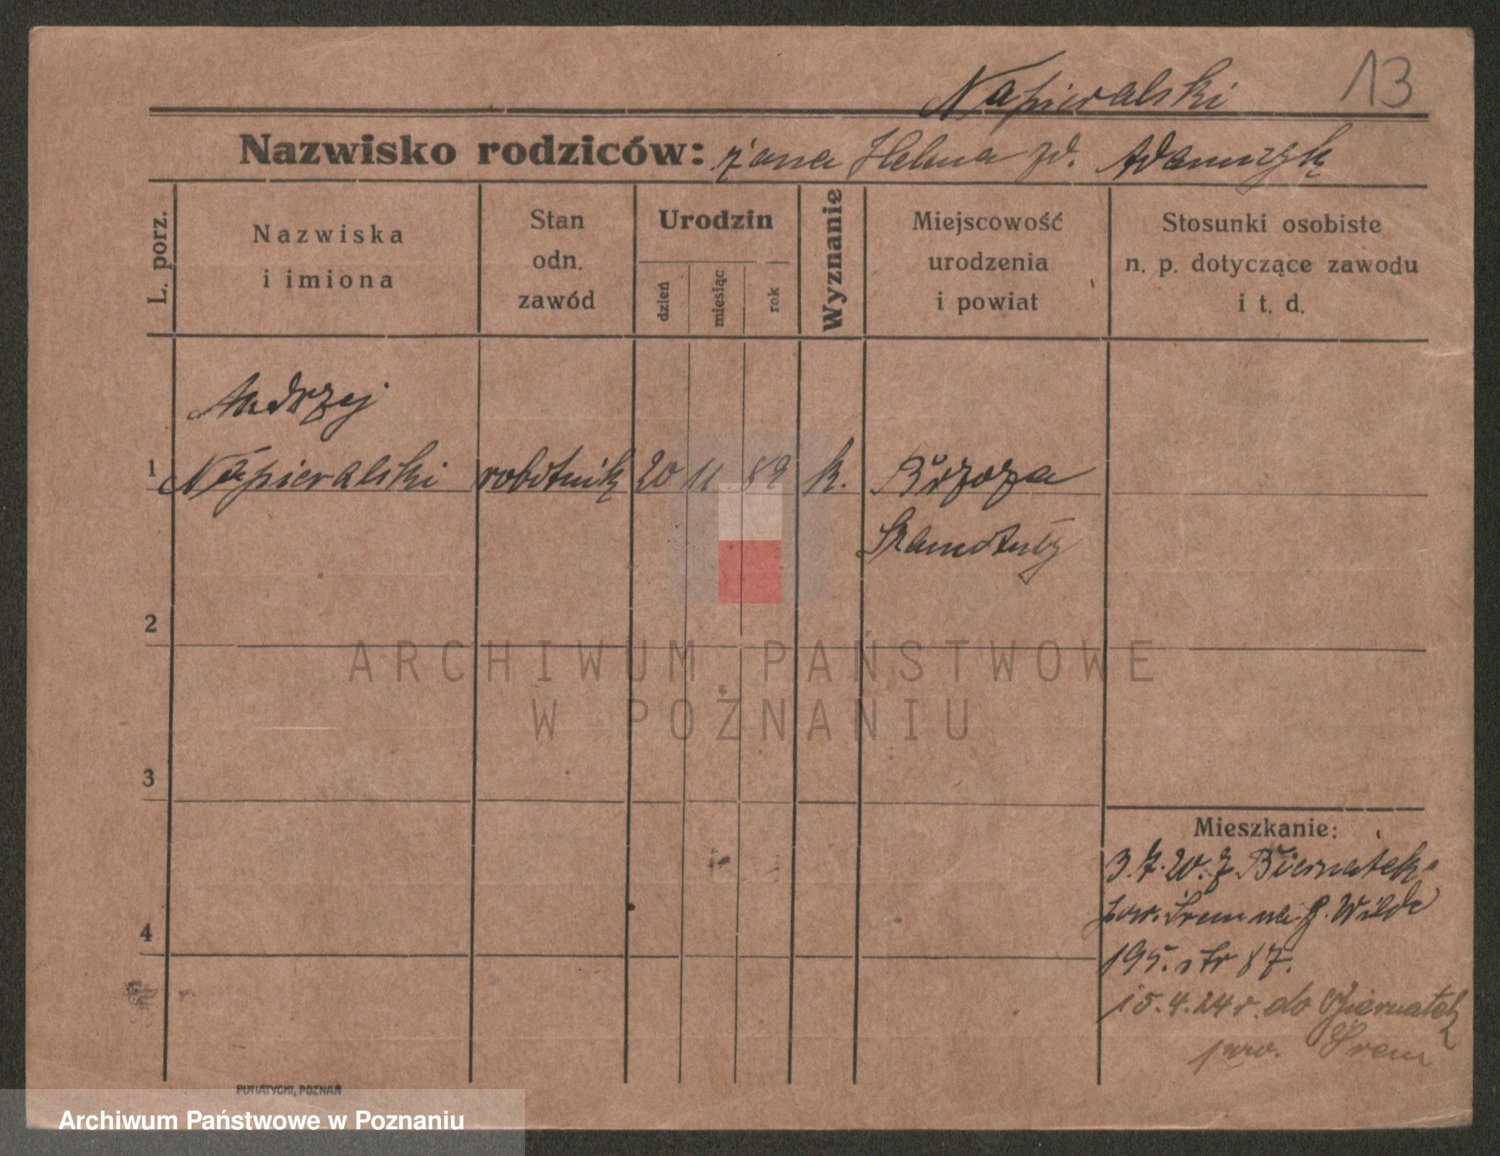 Napieralski 13
Nazwisko rodziców: żona Helena zd. Adamczyk
L. porz.
Nazwiska
i imiona
Stan
odn.
zawód
Urodzin
dzień
miesiąc
rok
Wyznanie
Miejscowość
urodzenia
i powiat
Stosunki osobiste
n. p. dotyczące zawodu
i t. d.
Andrzej
1 Napieralski robotnik 20 11 89 k. Brzoza
Szamotuły
2
ARCHIWUM PAŃSTWOWE
W POZNANIU
3
Mieszkanie:
3.7.20. z Biernatek
pow. Śrem na G. Wilde
4
195. str 87.
15.4.24 r. do Biernatek
pow. Śrem
PUTIATYCKI, POZNAŃ
Archiwum Państwowe w Poznaniu